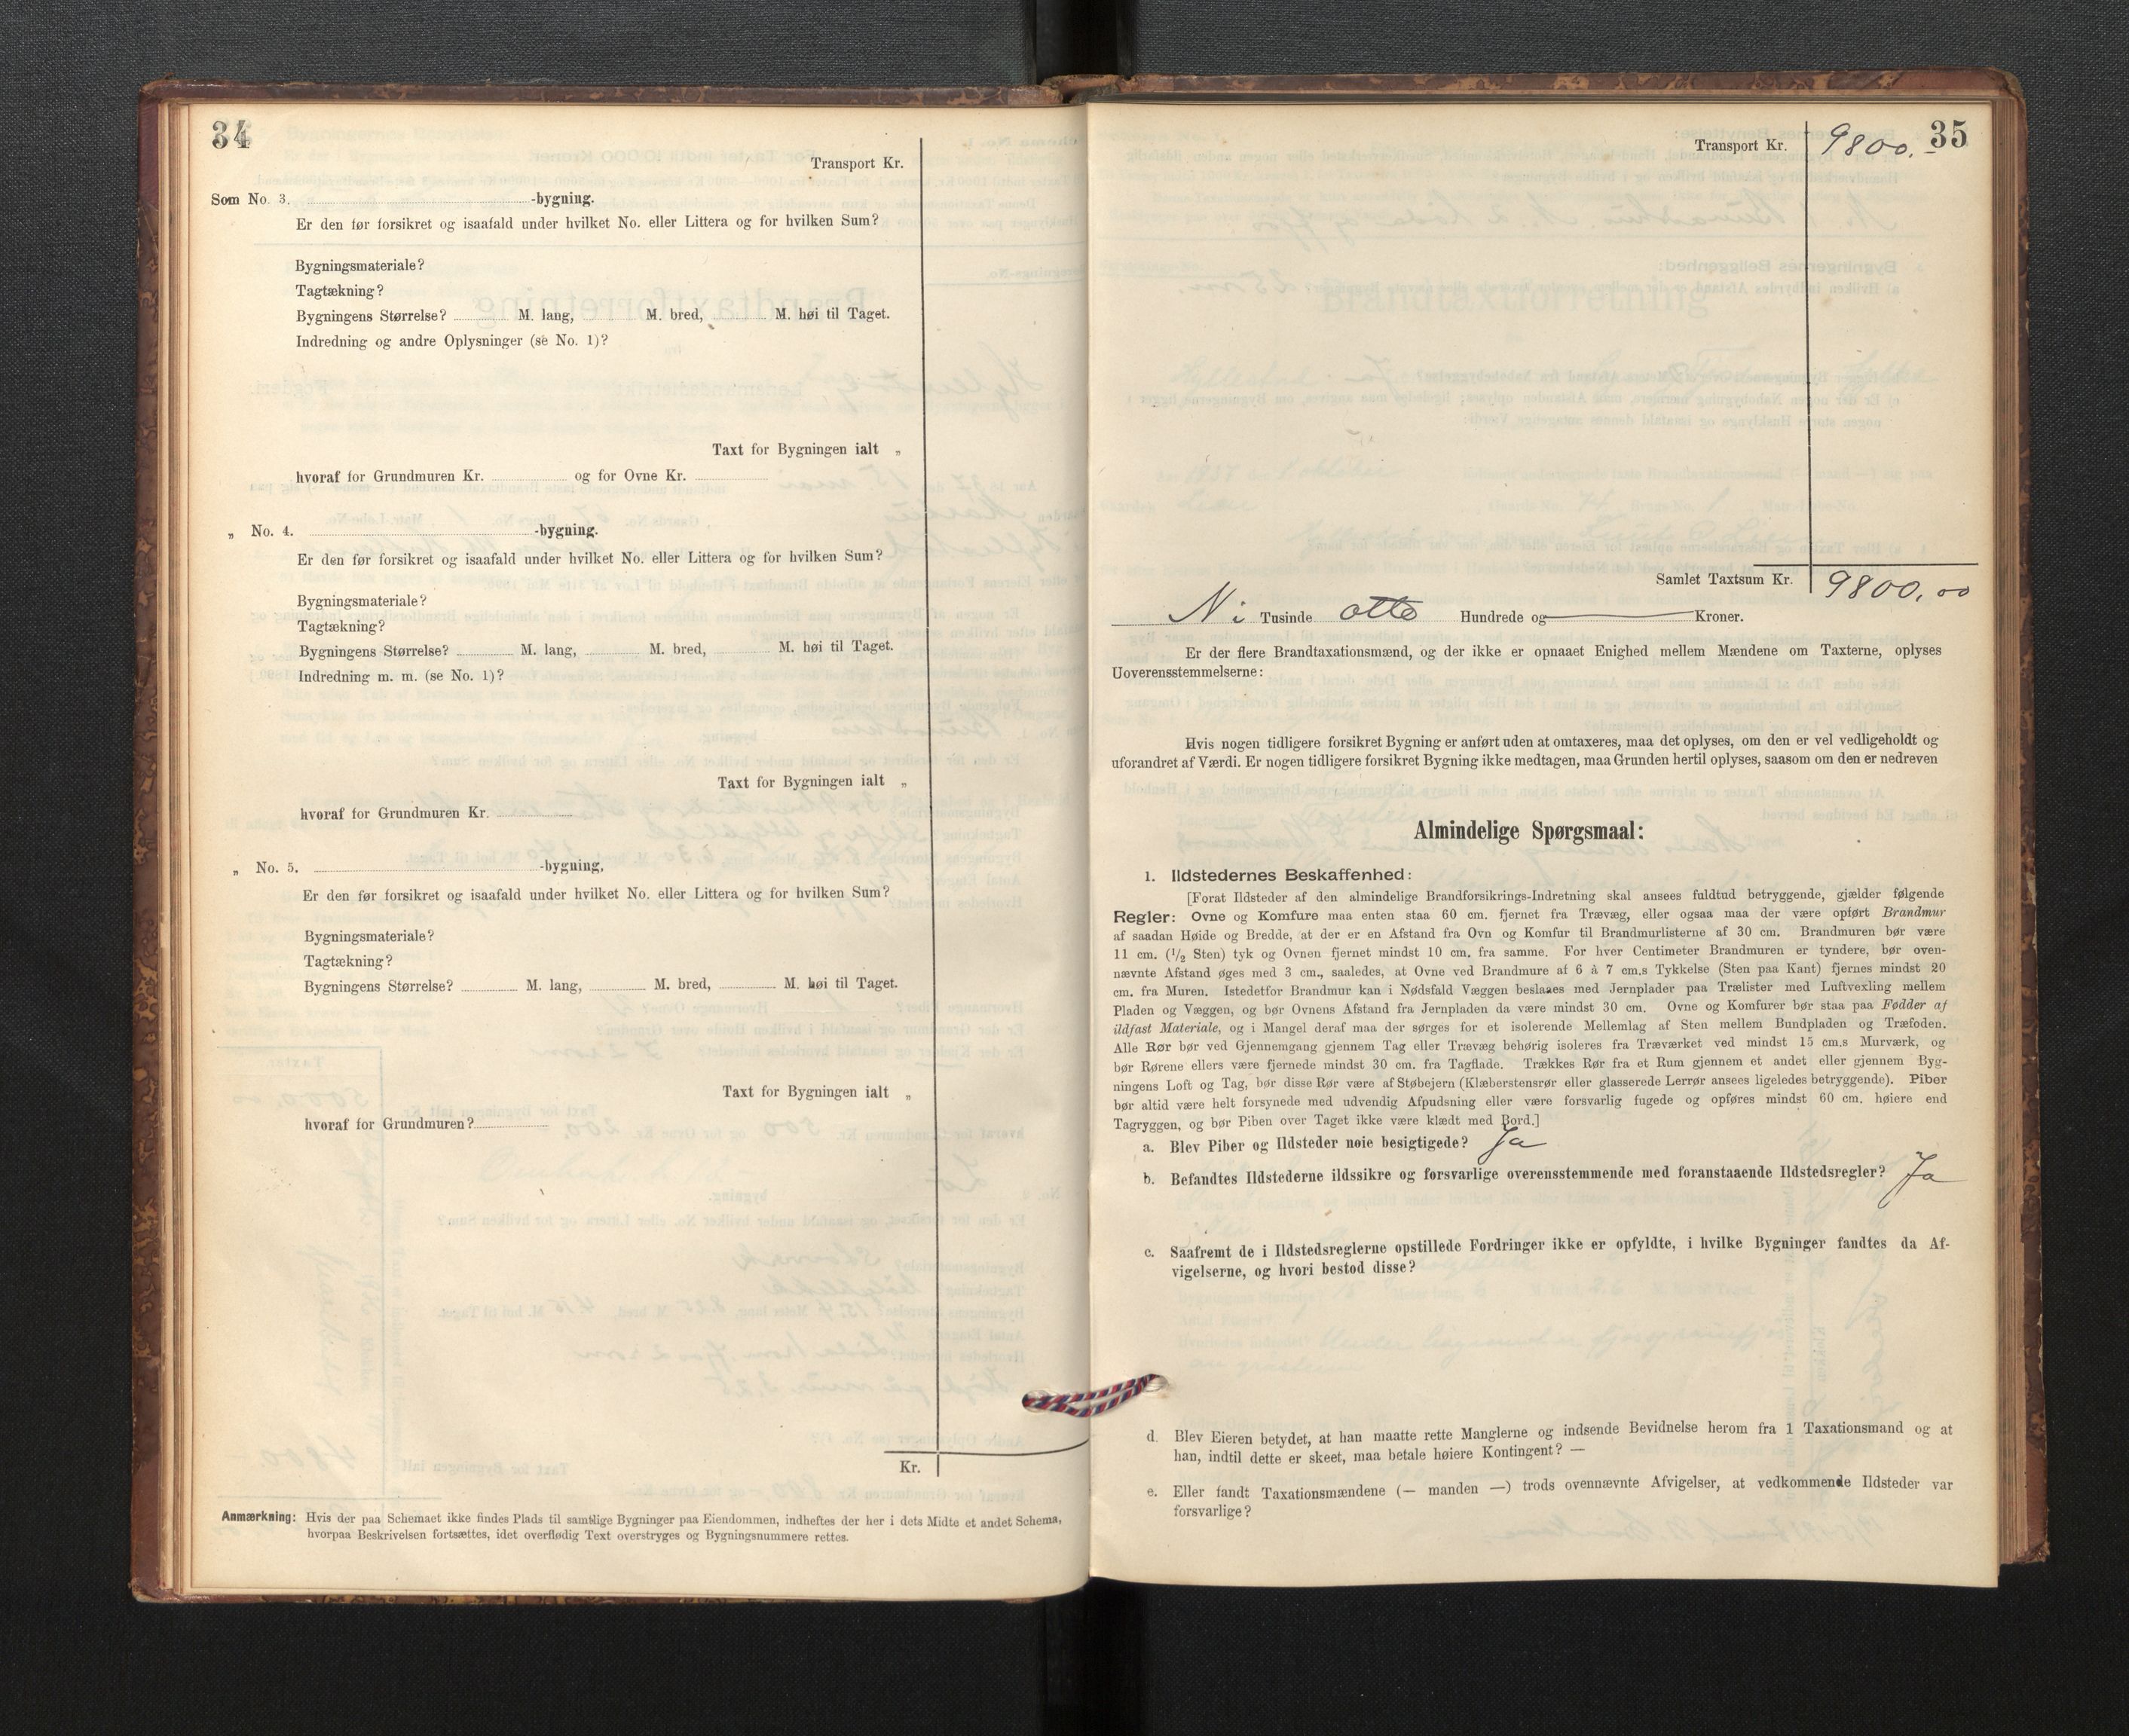 34
Transport Kr.
Som No. 3. -bygning.
Er den før forsikret og isaafald under hvilket No. eller Littera og for hvilken Sum?
Bygningsmateriale?
Tagtækning?
Bygningens Størrelse? M. lang, M. bred, M. høi til Taget.
Indredning og andre Oplysninger (se No. 1)?
Taxt for Bygningen ialt „
hvoraf for Grundmuren Kr. og for Ovne Kr.
„ No. 4. -bygning.
Er den før forsikret og isaafald under hvilket No. eller Littera og for hvilken Sum?
Bygningsmateriale?
Tagtækning?
Bygningens Størrelse? M. lang, M. bred, M. høi til Taget.
Indredning m. m. (se No. 1)?
Taxt for Bygningen ialt „
hvoraf for Grundmuren Kr.
„ No. 5. -bygning,
Er den før forsikret og isaafald under hvilket No. eller Littera og for hvilken Sum?
Bygningsmateriale?
Tagtækning?
Bygningens Størrelse? M. lang, M. bred, M. høi til Taget.
Taxt for Bygningen ialt „
hvoraf for Grundmuren?
Kr.
Anmærkning: Hvis der paa Schemaet ikke findes Plads til samtlige Bygninger paa Eiendommen, indheftes der her i dets Midte et andet Schema,
hvorpaa Beskrivelsen fortsættes, idet overflødig Text overstryges og Bygningsnummere rettes.
35
Transport Kr. 9800.-
Samlet Taxtsum Kr. 9800,00
Ni Tusinde otte Hundrede og Kroner.
Er der flere Brandtaxationsmænd, og der ikke er opnaaet Enighed mellem Mændene om Taxterne, oplyses
Uoverensstemmelserne:
Hvis nogen tidligere forsikret Bygning er anført uden at omtaxeres, maa det oplyses, om den er vel vedligeholdt og
uforandret af Værdi. Er nogen tidligere forsikret Bygning ikke medtagen, maa Grunden hertil oplyses, saasom om den er nedreven
Almindelige Spørgsmaal:
1. Ildstedernes Beskaffenhed:
[Forat Ildsteder af den almindelige Brandforsikrings-Indretning skal ansees fuldtud betryggende, gjælder følgende
Regler: Ovne og Komfure maa enten staa 60 cm. fjernet fra Trævæg, eller ogsaa maa der være opført Brandmur
af saadan Høide og Bredde, at der er en Afstand fra Ovn og Komfur til Brandmurlisterne af 30 cm. Brandmuren bør være
11 cm. (1/2 Sten) tyk og Ovnen fjernet mindst 10 cm. fra samme. For hver Centimeter Brandmuren er tyndere, bør oven-
nævnte Afstand øges med 3 cm., saaledes, at Ovne ved Brandmure af 6 à 7 cm.s Tykkelse (Sten paa Kant) fjernes mindst 20
cm. fra Muren. Istedetfor Brandmur kan i Nødsfald Væggen beslaaes med Jernplader paa Trælister med Luftvexling mellem
Pladen og Væggen, og bør Ovnens Afstand fra Jernpladen da være mindst 30 cm. Ovne og Komfurer bør staa paa Fødder af
ildfast Materiale, og i Mangel deraf maa der sørges for et isolerende Mellemlag af Sten mellem Bundpladen og Træfoden.
Alle Rør bør ved Gjennemgang gjennem Tag eller Trævæg behørig isoleres fra Træværket ved mindst 15 cm.s Murværk, og
bør Rørene ellers være fjernede mindst 30 cm. fra Tagflade. Trækkes Rør fra et Rum gjennem et andet eller gjennem Byg-
ningens Loft og Tag, bør disse Rør være af Støbejern (Klæberstensrør eller glasserede Lerrør ansees ligeledes betryggende). Piber
bør altid være helt forsynede med udvendig Afpudsning eller være forsvarlig fugede og opføres mindst 60 cm. høiere end
Tagryggen, og bør Piben over Taget ikke være klædt med Bord.]
a. Blev Piber og Ildsteder nøie besigtigede? Ja
b. Befandtes Ildstederne ildssikre og forsvarlige overensstemmende med foranstaaende Ildstedsregler? Ja
c. Saafremt de i Ildstedsreglerne opstillede Fordringer ikke er opfyldte, i hvilke Bygninger fandtes da Af-
vigelserne, og hvori bestod disse?
d. Blev Eieren betydet, at han maatte rette Manglerne og indsende Bevidnelse herom fra 1 Taxationsmand og at
han, indtil dette er skeet, maa betale høiere Kontingent? —
e. Eller fandt Taxationsmændene (— manden —) trods ovennævnte Afvigelser, at vedkommende Ildsteder var
forsvarlige?